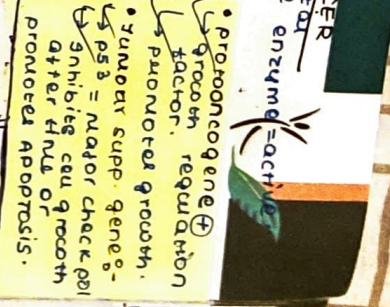 KER
enzyme = active
• protooncogene ⊕
↳ growth regulation
factor.
↳ promotes growth.
• Tumour supp. gene:-
↳ p53 = Major check poi
↳ inhibits cell growth
after this or
promotes APOPTOSIS.